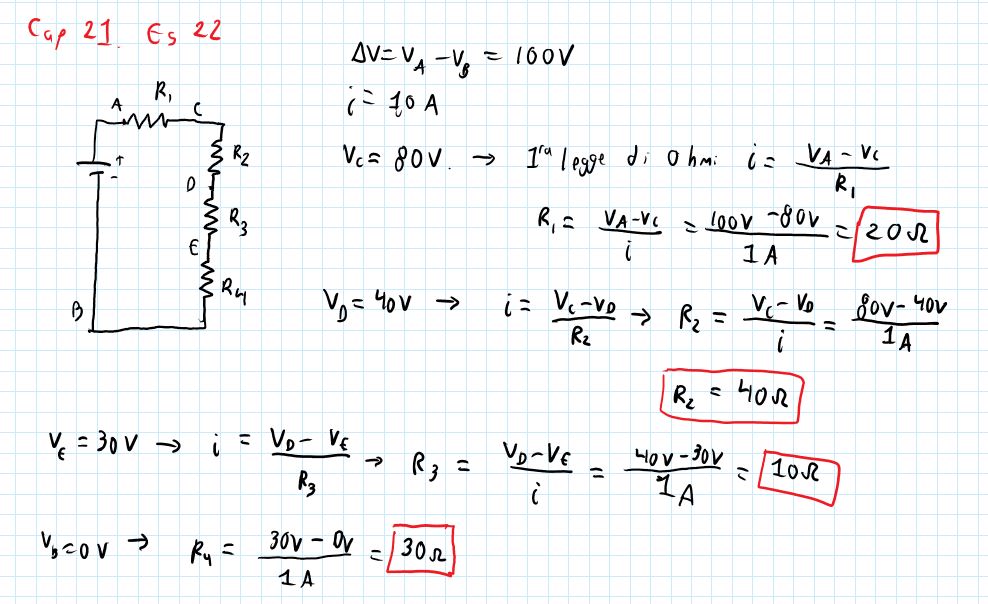 Cap 21. Es 22
ΔV = V_A - V_B = 100V
i = 10 A
A R_1 C
+
-
R_2
D
R_3
E
R_4
B
V_C = 80V. → 1^ra legge di Ohm: i = (V_A - V_C) / R_1
R_1 = (V_A - V_C) / i = (100V - 80V) / 1A = 20Ω
V_D = 40V → i = (V_C - V_D) / R_2 → R_2 = (V_C - V_D) / i = (80V - 40V) / 1A
R_2 = 40Ω
V_E = 30V → i = (V_D - V_E) / R_3 → R_3 = (V_D - V_E) / i = (40V - 30V) / 1A = 10Ω
V_B = 0V → R_4 = (30V - 0V) / 1A = 30Ω